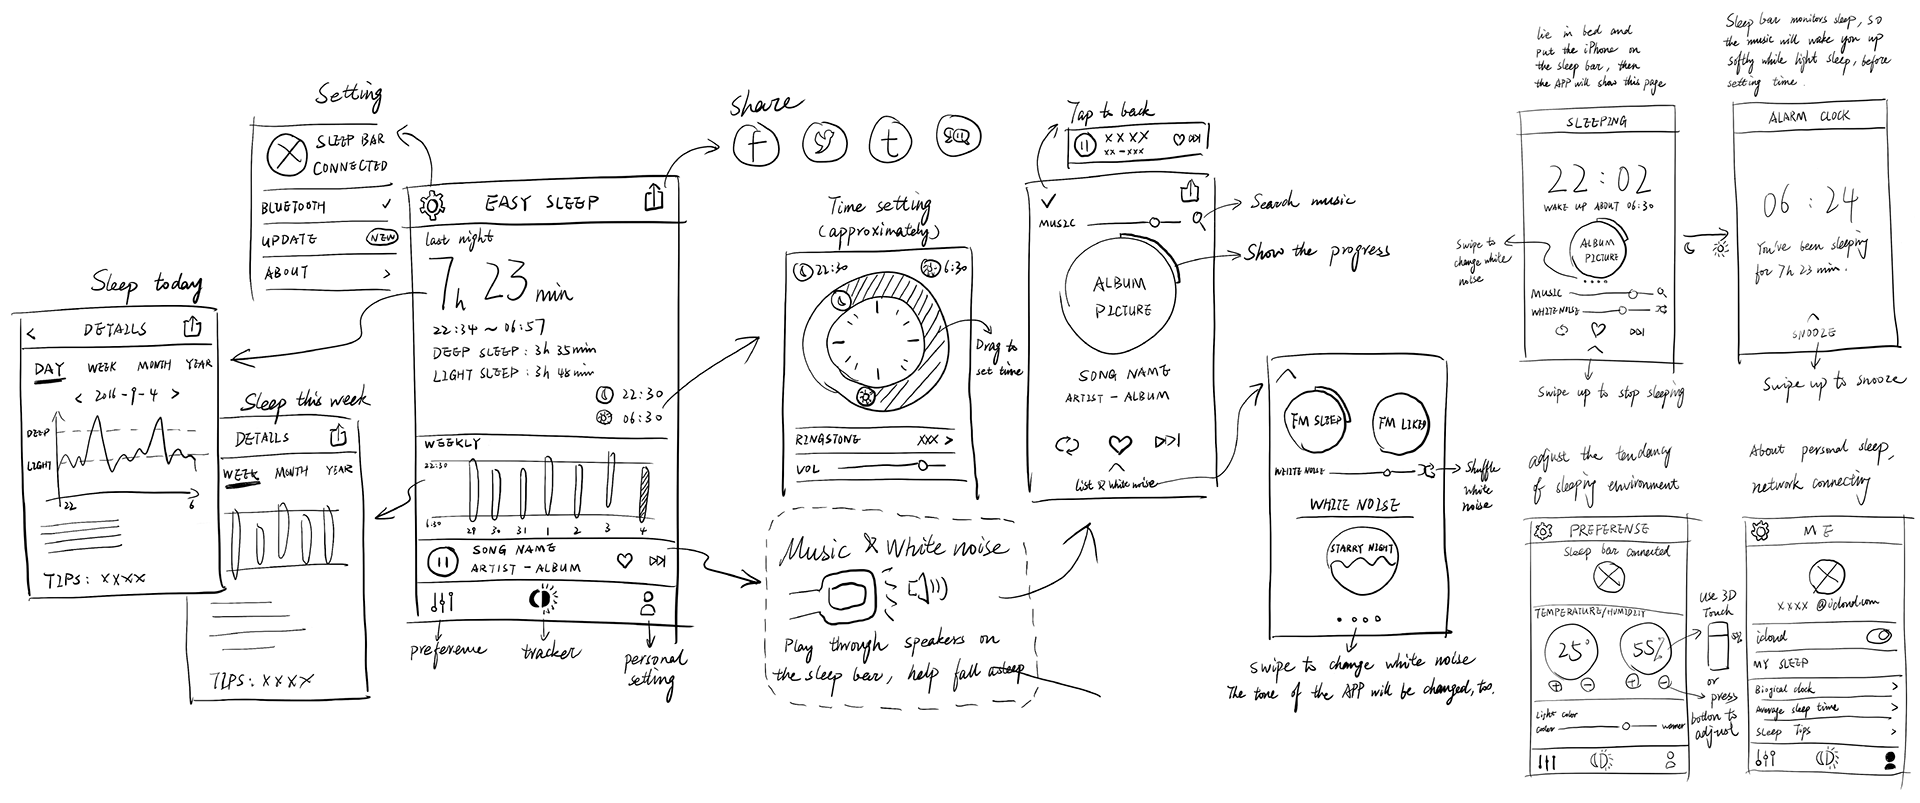 Setting
SLEEP BAR
CONNECTED
BLUETOOTH
UPDATE NEW
ABOUT >
Sleep today
< DETAILS
DAY WEEK MONTH YEAR
< 2016-9-4 >
DEEP
LIGHT
22 6
TIPS: XXXX
Sleep this week
DETAILS
WEEK MONTH YEAR
TIPS: XXXX
EASY SLEEP
last night
7h 23min
22:34 ~ 06:57
DEEP SLEEP : 3h 35min
LIGHT SLEEP : 3h 48min
22:30
06:30
WEEKLY
22:30
6:30
29 30 31 1 2 3 4
SONG NAME
ARTIST - ALBUM
preference
tracker
personal
setting
Share
f t
Time setting
(approximately)
22:30 6:30
Drag to
set time
RINGSTONE XXX >
VOL
Music & White noise
Play through speakers on
the sleep bar, help fall asleep
Tap to back
XXXX
XX - XXX
MUSIC
Search music
Show the progress
ALBUM
PICTURE
SONG NAME
ARTIST - ALBUM
list & white noise
FM SLEEP FM LIKED
WHITE NOISE
Shuffle
white
noise
WHITE NOISE
STARRY NIGHT
Swipe to change white noise
The tone of the APP will be changed, too.
lie in bed and
put the iPhone on
the sleep bar, then
the APP will show this page
SLEEPING
22:02
WAKE UP ABOUT 06:30
ALBUM
PICTURE
Swipe to
change white
noise
MUSIC
WHITE NOISE
Swipe up to stop sleeping
Sleep bar monitors sleep, so
the music will wake you up
softly while light sleep, before
setting time.
ALARM CLOCK
06 : 24
You've been sleeping
for 7h 23 min.
SNOOZE
Swipe up to snooze
adjust the tendancy
of sleeping environment
PREFERENSE
Sleep bar connected
TEMPERATURE/HUMIDITY
25° 55%
Light color
cooler warmer
use 3D
Touch
or
press
botton to
adjust
About personal sleep,
network connecting
ME
XXXX @icloud.com
icloud
MY SLEEP
Biogical clock >
Average sleep time >
Sleep Tips >